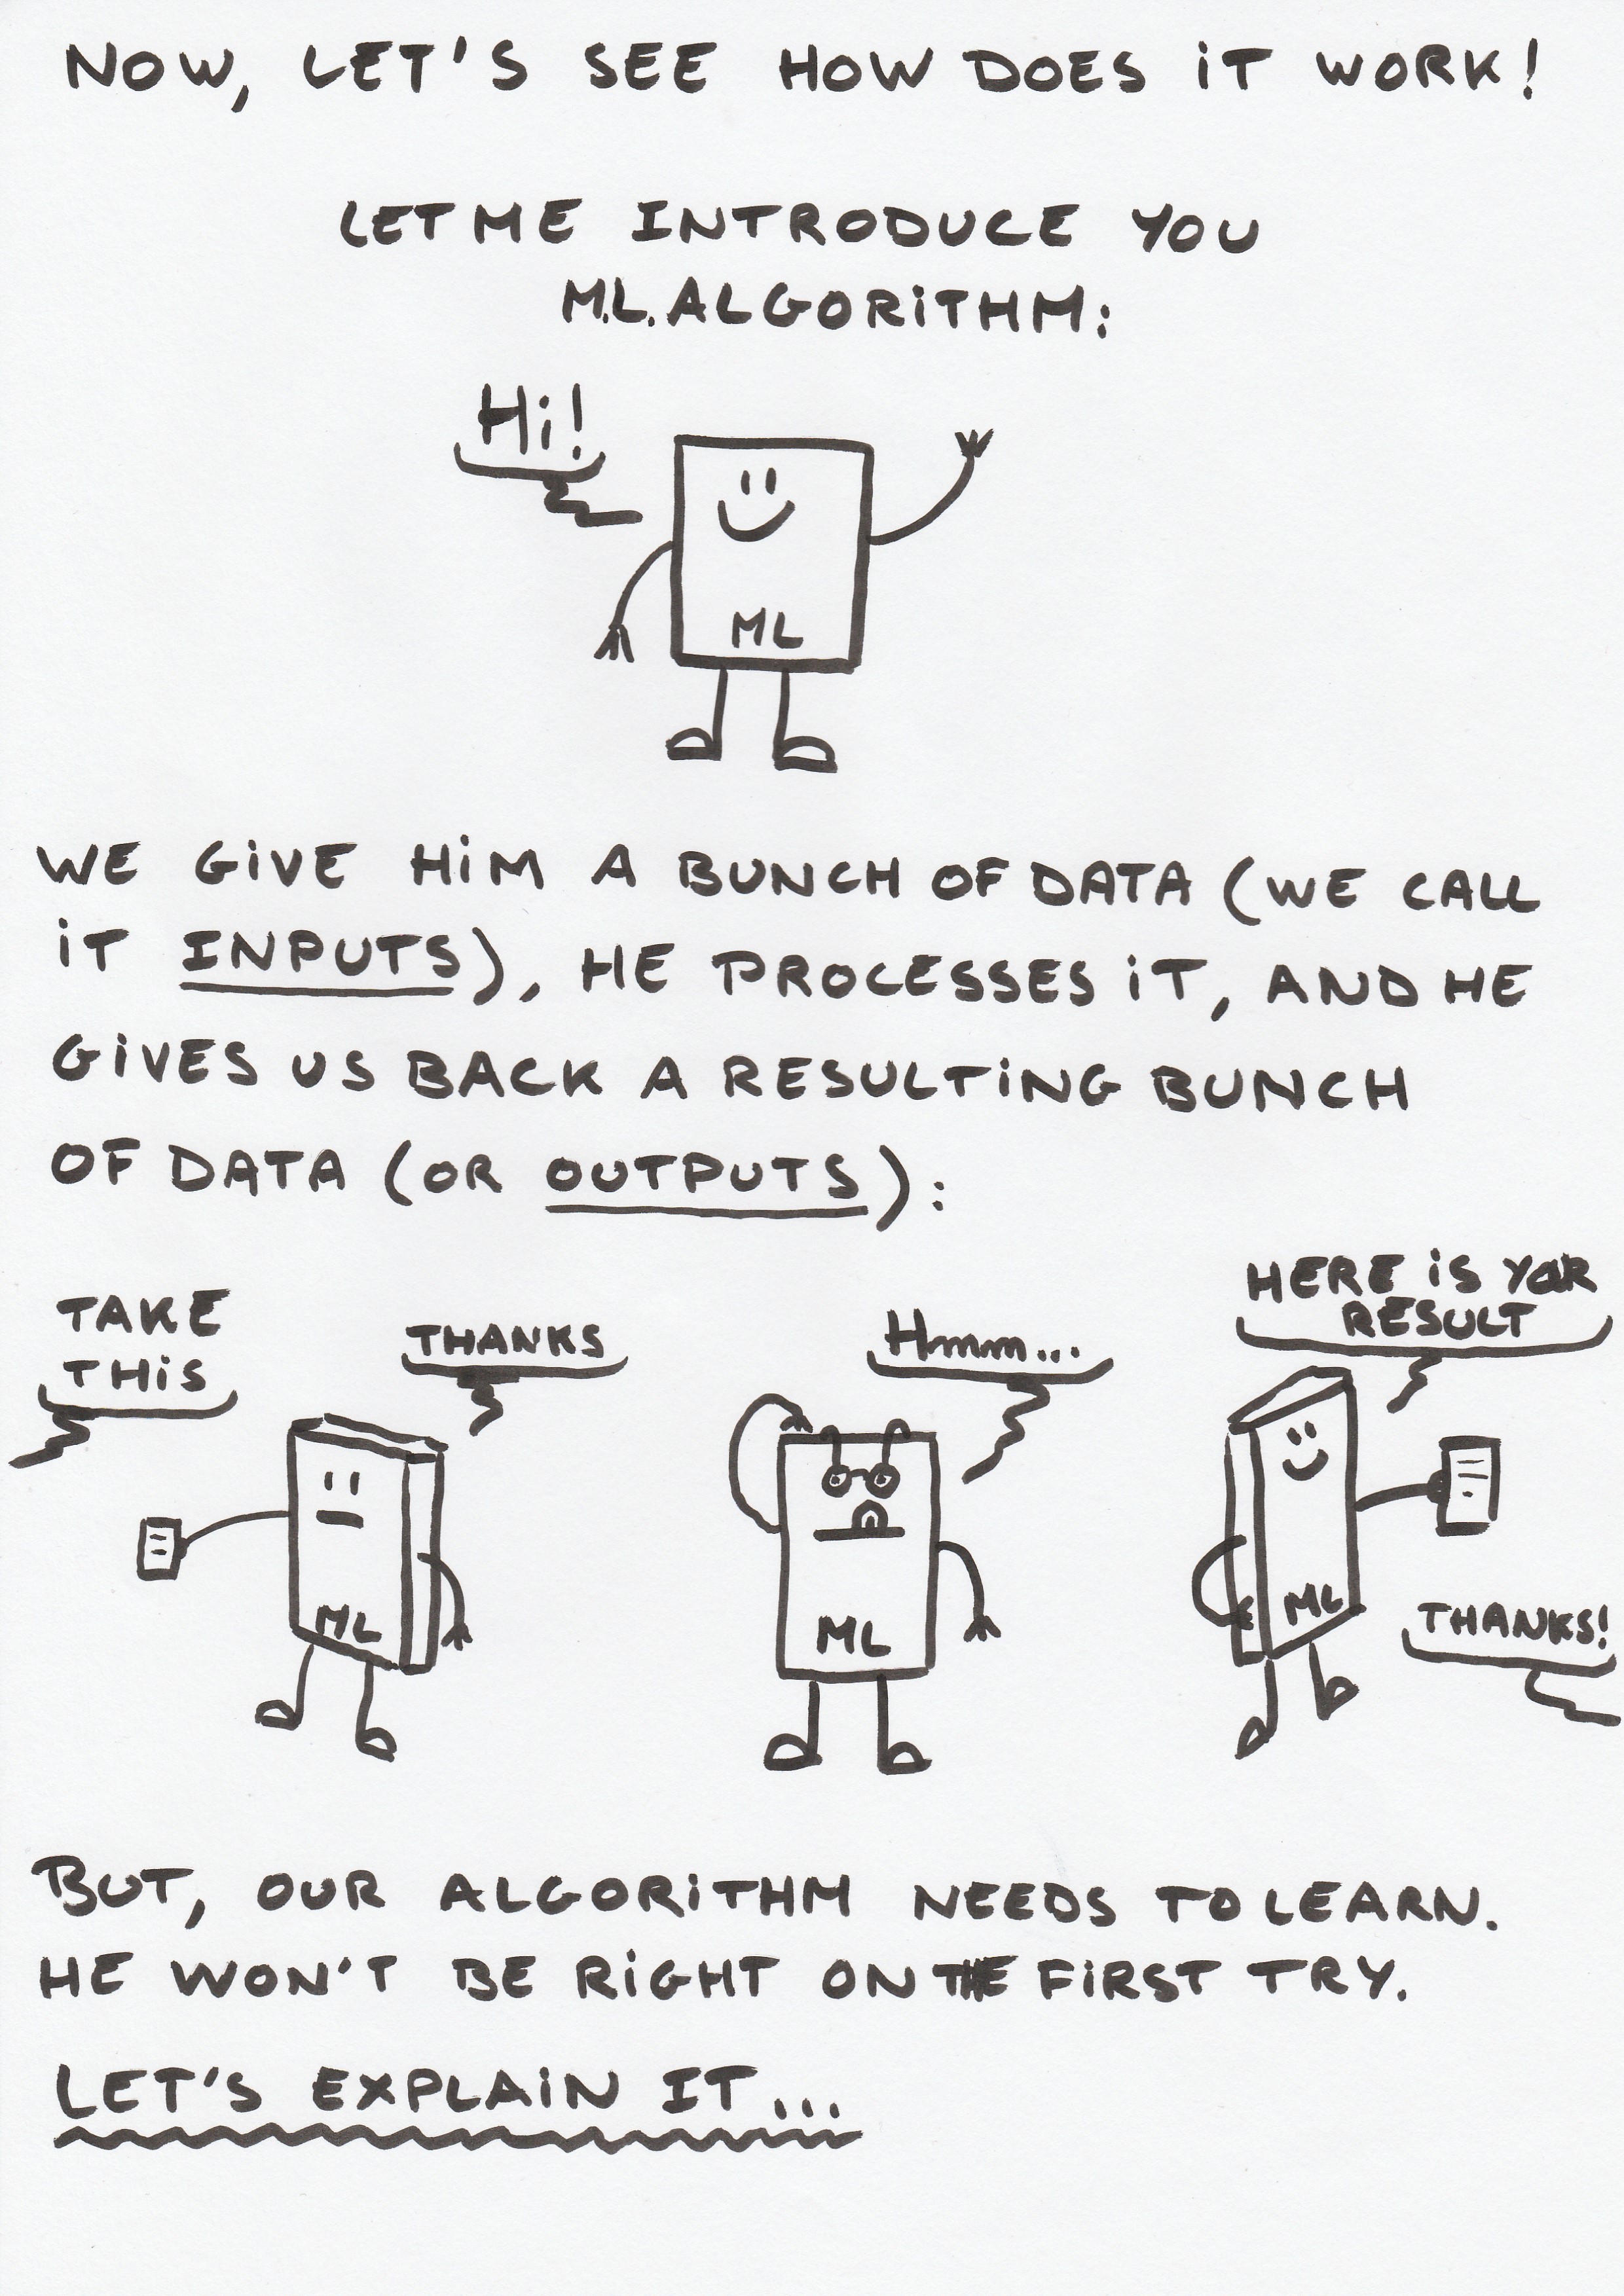 NOW, LET'S SEE HOW DOES iT WORK!
LET ME INTRODUCE YOU
M.L. ALGORiTHM:
Hi!
ML
WE GiVE HiM A BUNCH OF DATA (WE CALL
iT INPUTS), HE PROCESSES iT, AND HE
GiVES US BACK A RESULTiNG BUNCH
OF DATA (OR OUTPUTS):
TAKE
THiS
THANKS
ML
Hmmm...
ML
HERE iS YOUR
RESULT
ML
THANKS!
BUT, OUR ALGORiTHM NEEDS TO LEARN.
HE WON'T BE RiGHT ON THE FiRST TRY.
LET'S EXPLAiN IT...